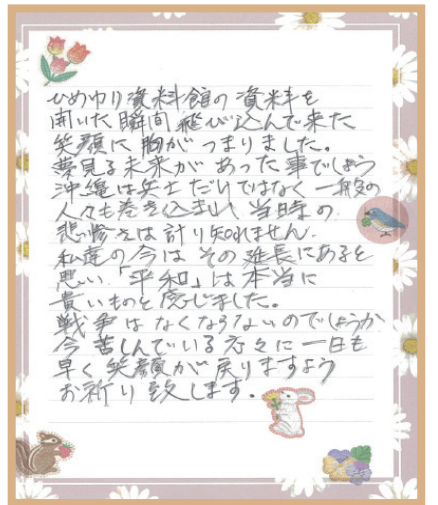 ひめゆり資料館の資料を
開いた瞬間飛び込んで来た
笑顔に胸がつまりました。
夢見る未来があった事でしょう
沖縄は兵士だけではなく一般の
人々も巻き込まれ当時の
悲惨さは計り知れません.
私達の今はその延長にあると
思い「平和」は本当に
貴いものと感じました。
戦争はなくならないのでしょうか
今苦しんでいる方々に一日も
早く笑顔が戻りますよう
お祈り致します.